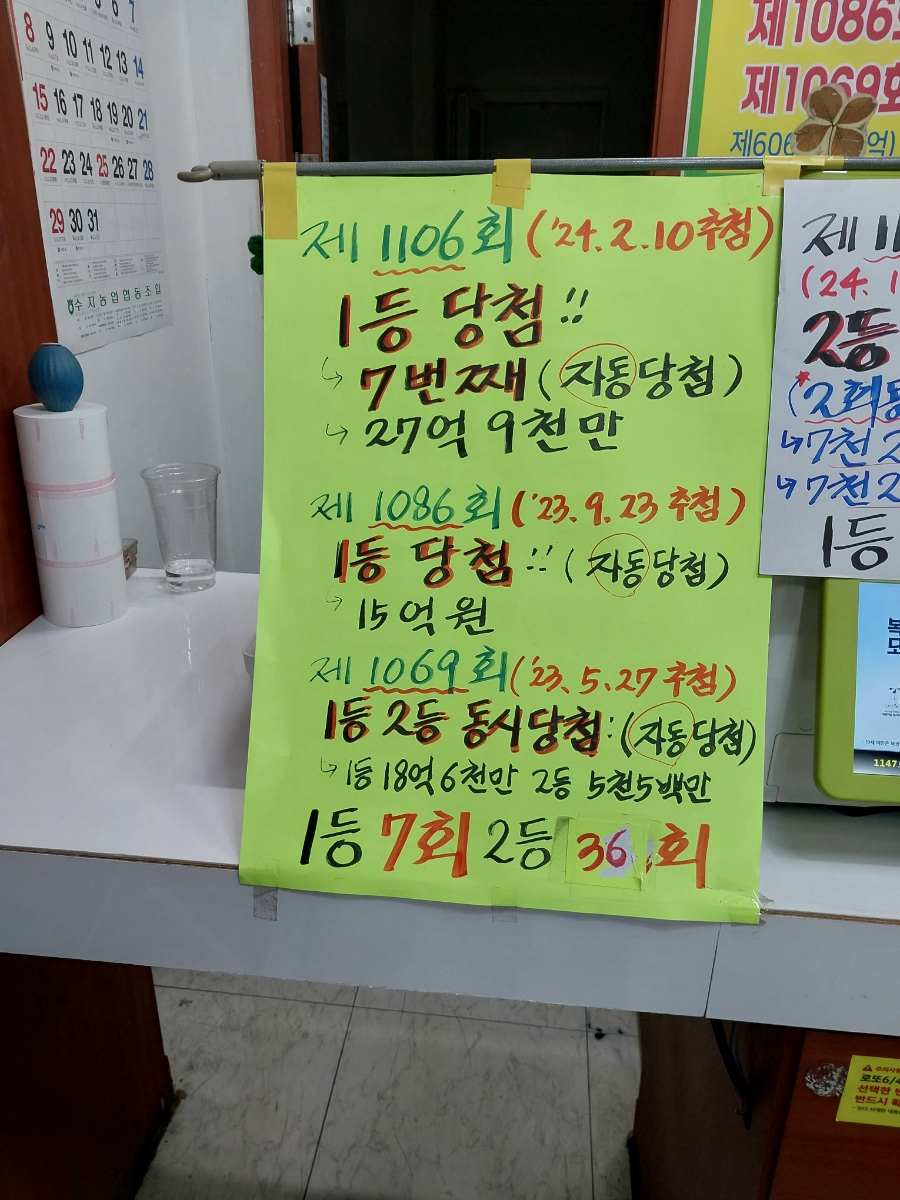 5 6 7
8 9 10 11 12 13 14
15 16 17 18 19 20 21
22 23 24 25 26 27 28
29 30 31
수지농업협동조합
제1086회
제1069회
제606
억)
제 1106회 ('24.2.10 추첨)
1등 당첨!!
↳ 7번째 (자동당첨)
↳ 27억 9천만
제 1086회 ('23.9.23 추첨)
1등 당첨!! (자동당첨)
↳ 15억원
제 1069회 ('23.5.27 추첨)
1등 2등 동시당첨: (자동당첨)
↳ 1등 18억6천만 2등 5천5백만
1등 7회 2등 36회
제 11
(24. 1
2등
(2회동
↳7천2
↳7천2
1등
1147
주의사항
로또6/4
선택한 번
반드시 확